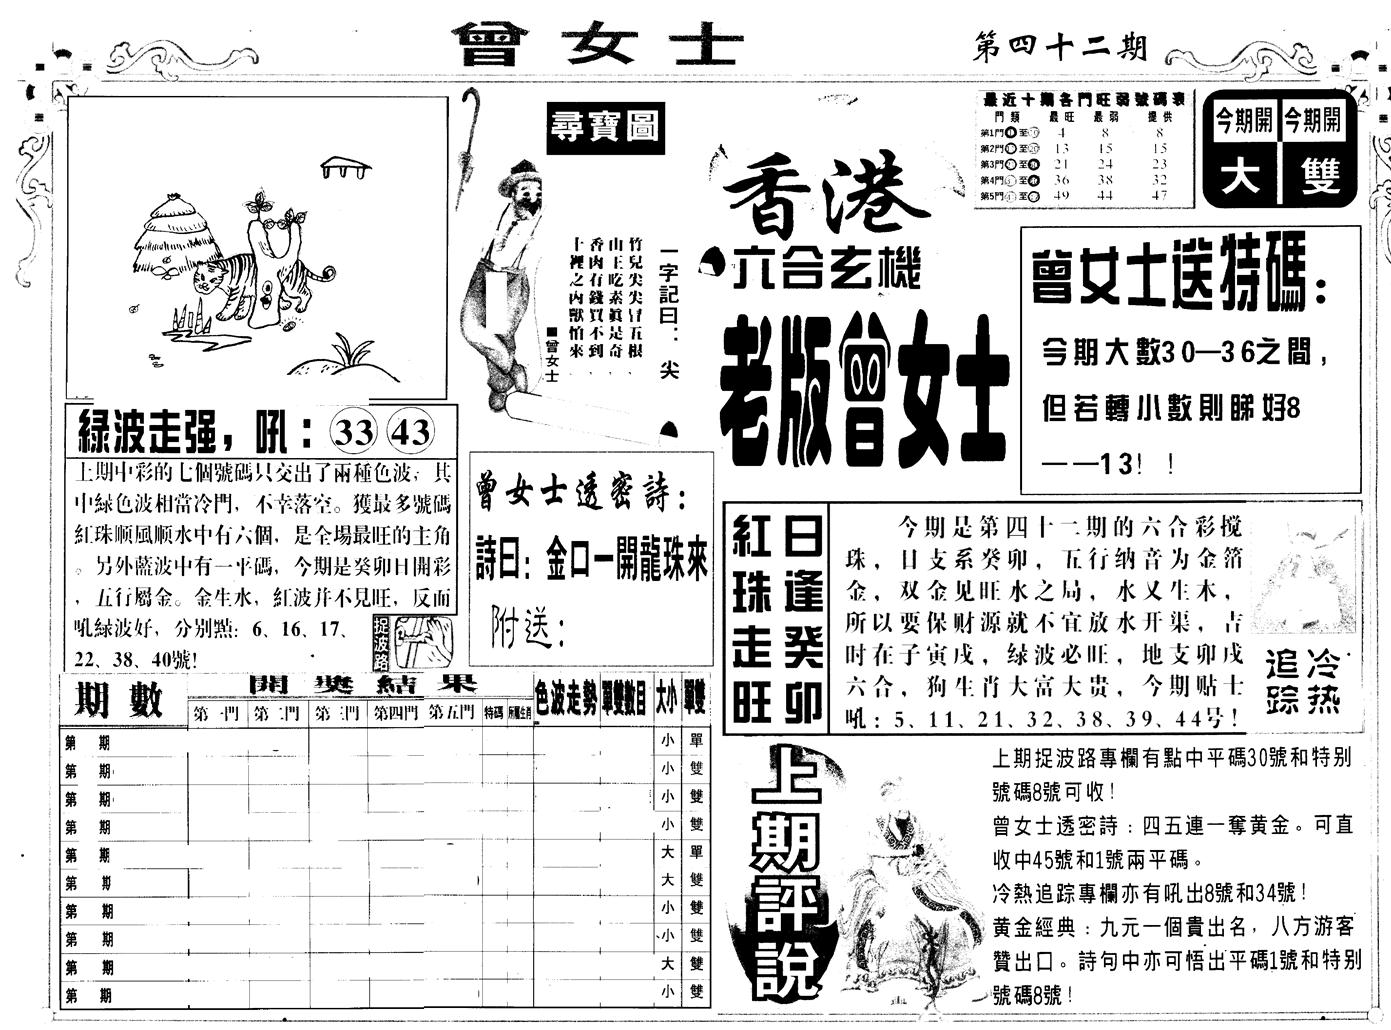 曾女士
第四十二期
尋寶圖
一字記曰：尖
竹兒尖尖冒五根，
山王吃素真是奇，
香肉有錢買不到，
十裡之內獸怕來。
■曾女士
香港
六合玄機
老版曾女士
最近十期各門旺弱號碼表
門類 最旺 最弱 提供
第1門 至 4 8 8
第2門 至 13 15 15
第3門 至 21 24 23
第4門 至 36 38 32
第5門 至 49 44 47
今期開 今期開
大 雙
曾女士送特碼：
今期大數30—36之間，
但若轉小數則睇好8
——13！！
綠波走强，吼：33 43
上期中彩的七個號碼只交出了兩種色波，其
中綠色波相當冷門，不幸落空。獲最多號碼
紅珠顺風顺水中有六個，是全場最旺的主角
。另外藍波中有一平碼，今期是癸卯日開彩
，五行屬金。金生水，紅波并不見旺，反面
吼綠波好，分别點：6、16、17、
22、38、40號！
捉波路
曾女士透密詩：
詩曰：金口一開龍珠來
附送：
日逢癸卯
紅珠走旺
今期是第四十二期的六合彩搅
珠，日支系癸卯，五行纳音为金箔
金，双金见旺水之局，水又生木，
所以要保财源就不宜放水开渠，吉
时在子寅戌，绿波必旺，地支卯戌
六合，狗生肖大富大贵，今期贴士
吼：5、11、21、32、38、39、44号！
冷热
追踪
期數 開獎結果 色波走勢 單雙數目 大小 單雙
第一門 第二門 第三門 第四門 第五門 特碼 所屬生肖
第 期 小 單
第 期 小 雙
第 期 小 雙
第 期 小 雙
第 期 大 單
第 期 大 雙
第 期 小 雙
第 期 小 雙
第 期 大 雙
第 期 小 雙
上期評說
上期捉波路專欄有點中平碼30號和特别
號碼8號可收！
曾女士透密詩：四五連一奪黃金。可直
收中45號和1號兩平碼。
冷熱追踪專欄亦有吼出8號和34號！
黄金經典：九元一個貴出名，八方游客
贊出口。詩句中亦可悟出平碼1號和特别
號碼8號！